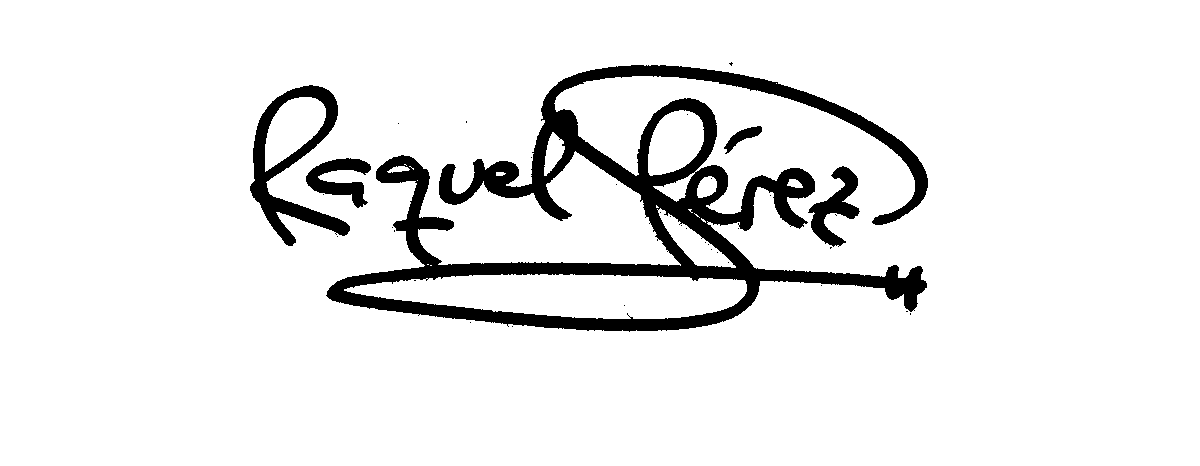 Raquel Pérez